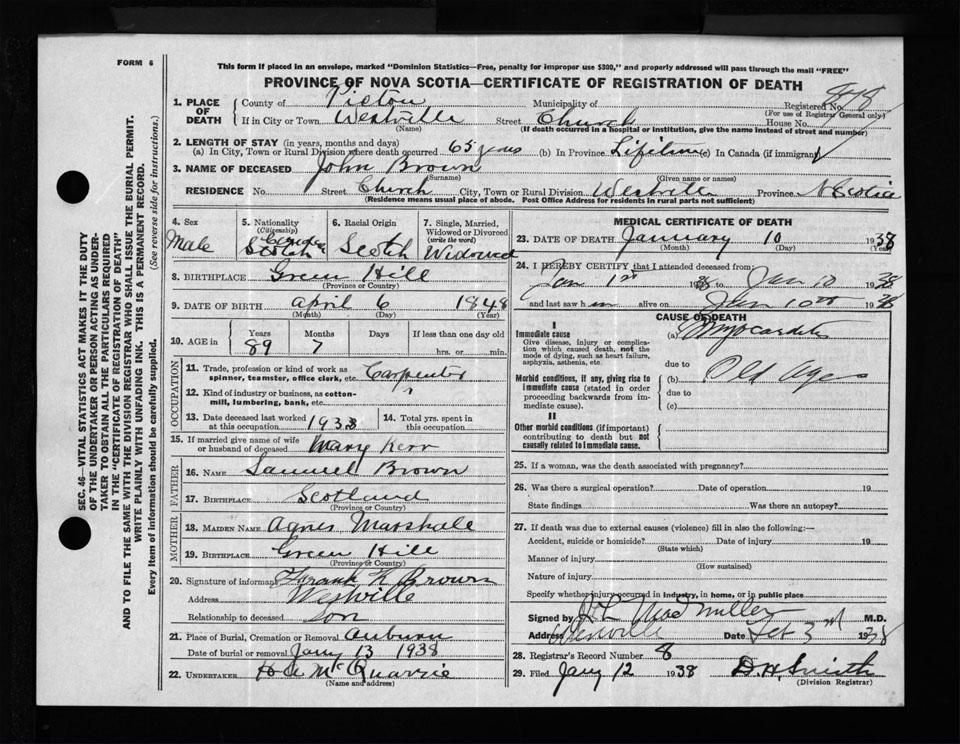 FORM 6
This form if placed in an envelope, marked "Dominion Statistics—Free, penalty for improper use $300," and properly addressed will pass through the mail "FREE"
PROVINCE OF NOVA SCOTIA—CERTIFICATE OF REGISTRATION OF DEATH
SEC. 46—VITAL STATISTICS ACT MAKES IT THE DUTY
OF THE UNDERTAKER OR PERSON ACTING AS UNDER-
TAKER TO OBTAIN ALL THE PARTICULARS REQUIRED
IN THE "CERTIFICATE OF REGISTRATION OF DEATH"
AND TO FILE THE SAME WITH THE DIVISION REGISTRAR WHO SHALL ISSUE THE BURIAL PERMIT.
WRITE PLAINLY WITH UNFADING INK. THIS IS A PERMANENT RECORD.
Every item of information should be carefully supplied. (See reverse side for instructions.)
1. PLACE OF DEATH County of Pictou Municipality of Registered No. 448
(For use of Registrar General only)
If in City or Town Westville Street Church House No.
(Name) (If death occurred in a hospital or institution, give the name instead of street and number)
2. LENGTH OF STAY (in years, months and days)
(a) In City, Town or Rural Division where death occurred 65 years (b) In Province Lifetime (c) In Canada (if immigrant)
3. NAME OF DECEASED John Brown
(Surname) (Given name or names)
RESIDENCE No. Street Church City, Town or Rural Division Westville Province N Scotia
(Residence means usual place of abode. Post Office Address for residents in rural parts not sufficient)
4. Sex Male
5. Nationality (Citizenship) Scotch
6. Racial Origin Scotch
7. Single, Married, Widowed or Divorced (write the word) Widowed
8. BIRTHPLACE Green Hill
(Province or Country)
9. DATE OF BIRTH April 6 1848
(Month) (Day) (Year)
10. AGE in Years 89 Months 7 Days If less than one day old hrs. or min.
OCCUPATION
11. Trade, profession or kind of work as spinner, teamster, office clerk, etc. Carpenter
12. Kind of industry or business, as cotton-mill, lumbering, bank, etc. ?
13. Date deceased last worked at this occupation 1938
14. Total yrs. spent in this occupation
15. If married give name of wife or husband of deceased Mary Kerr
FATHER
16. NAME Samuel Brown
17. BIRTHPLACE Scotland
(Province or Country)
MOTHER
18. MAIDEN NAME Agnes Marshall
19. BIRTHPLACE Green Hill
(Province or Country)
20. Signature of informant Frank K Brown
Address Westville
Relationship to deceased Son
21. Place of Burial, Cremation or Removal Auburn
Date of burial or removal Jany 13 1938
22. UNDERTAKER McQuarrie
(Name and address)
MEDICAL CERTIFICATE OF DEATH
23. DATE OF DEATH January 10 1938
(Month) (Day) (Year)
24. I HEREBY CERTIFY that I attended deceased from:
Jan 1st 1938 to Jan 10 1938
and last saw him alive on Jan 10th 1938
CAUSE OF DEATH
I
Immediate cause
Give disease, injury or complication which caused death, not the mode of dying, such as heart failure, asphyxia, asthenia, etc.
(a) Myocarditis
due to
Morbid conditions, if any, giving rise to immediate cause (stated in order proceeding backwards from immediate cause).
(b) Old Age
due to
(c)
II
Other morbid conditions (if important) contributing to death but not causally related to immediate cause.
25. If a woman, was the death associated with pregnancy?
26. Was there a surgical operation? Date of operation 19
State findings Was there an autopsy?
27. If death was due to external causes (violence) fill in also the following:—
Accident, suicide or homicide? Date of injury 19
(State which)
Manner of injury
(How sustained)
Nature of injury
Specify whether injury occurred in industry, in home, or in public place
Signed by M.D.
Address Westville Date Feb 3rd 1938
28. Registrar's Record Number 8
29. Filed Jany 12 1938 D.H. Smith
(Division Registrar)